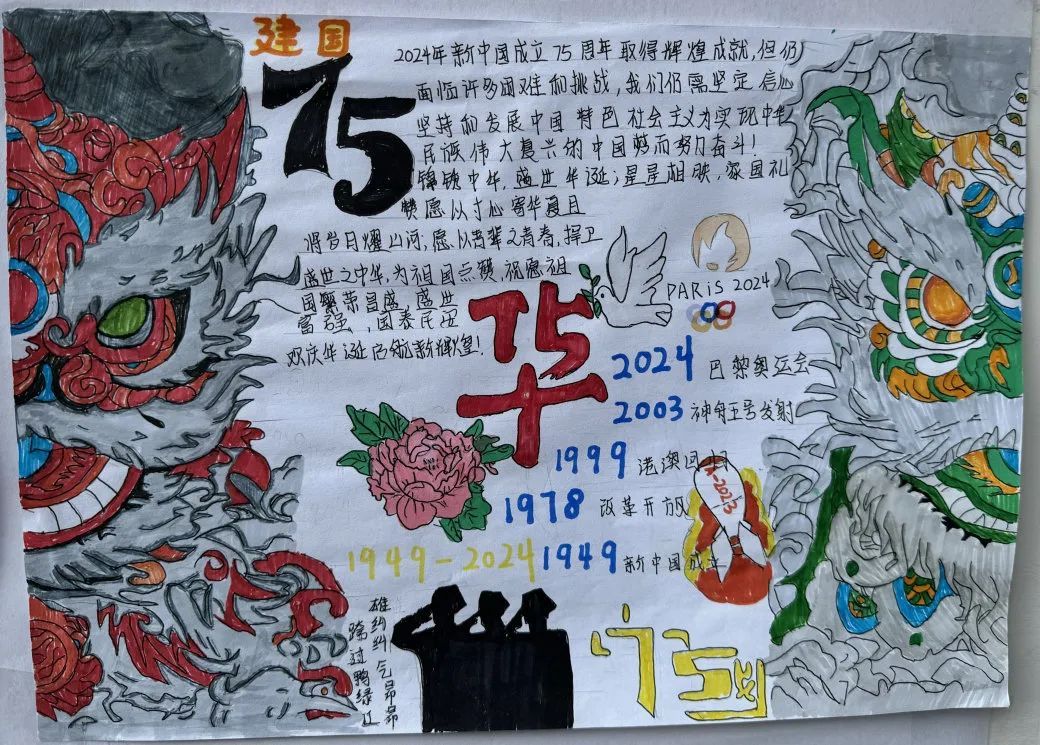 建国
75
2024年新中国成立75周年取得辉煌成就,但仍
面临许多困难和挑战,我们仍需坚定信心
坚持和发展中国特色社会主义为实现中华
民族伟大复兴的中国梦而努力奋斗!
锦绣中华,盛世华诞;星星相映,家国礼
赞愿以寸心寄华夏且
将岁月耀山河;愿以吾辈之青春,捍卫
盛世之中华,为祖国点赞,祝愿祖
国繁荣昌盛,盛世
富强,国泰民安
欢庆华诞启航新辉煌!
PARiS 2024
75
华
2024 巴黎奥运会
2003 神舟五号发射
1999 港澳回归
1978 改革开放
1949-2024
1949 新中国成立
雄纠纠气昂昂
跨过鸭绿江